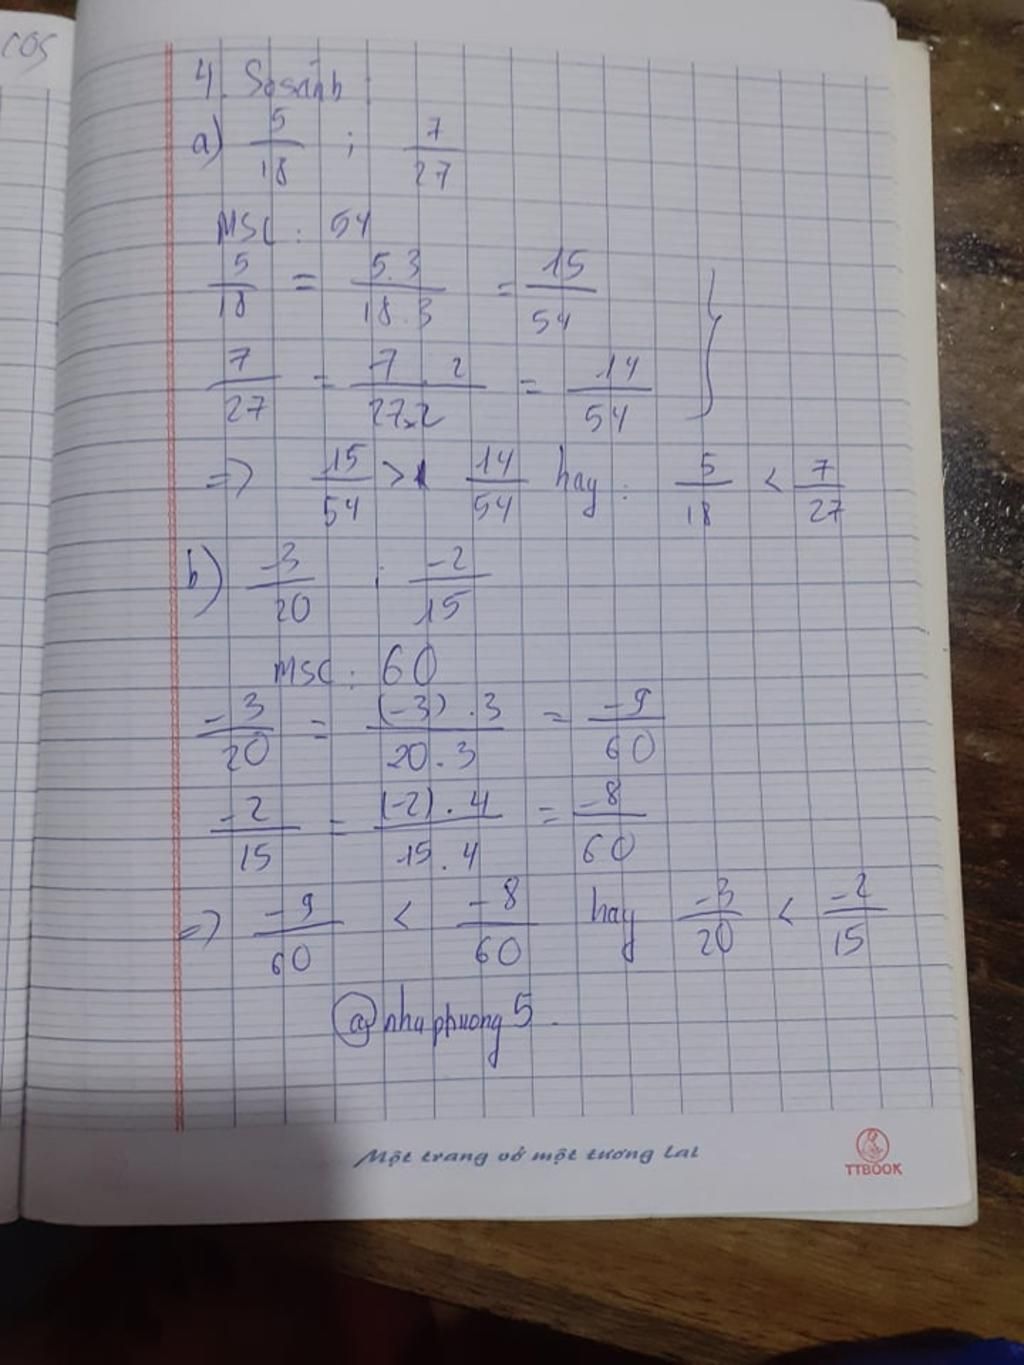 cos
4. So sánh
a) 5/18 ; 7/27
MSC : 54
5/18 = 5.3/18.3 = 15/54 }
7/27 = 7.2/27.2 = 14/54
=> 15/54 > 14/54 hay : 5/18 < 7/27
b) -3/20 ; -2/15
MSC : 60
-3/20 = (-3).3/20.3 = -9/60
-2/15 = (-2).4/15.4 = -8/60
=> -9/60 < -8/60 hay -3/20 < -2/15
@nhuphuong5.
Một trang vở một tương lai
TTBOOK